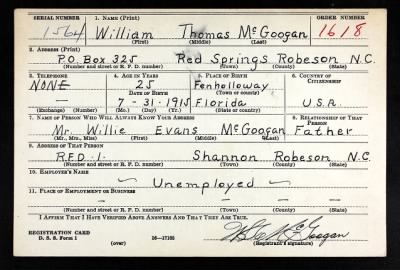 SERIAL NUMBER 1. NAME (Print) ORDER NUMBER
1564 William Thomas McGoogan 1618
(First) (Middle) (Last)
2. ADDRESS (Print)
P.O. Box 325 Red Springs Robeson N.C.
(Number and street or R. F. D. number) (Town) (County) (State)
3. TELEPHONE 4. AGE IN YEARS 5. PLACE OF BIRTH 6. COUNTRY OF CITIZENSHIP
NONE 25 Fenholloway
DATE OF BIRTH (Town or county)
7-31-1915 Florida U.S.A.
(Exchange) (Number) (Mo.) (Day) (Yr.) (State or country)
7. NAME OF PERSON WHO WILL ALWAYS KNOW YOUR ADDRESS 8. RELATIONSHIP OF THAT PERSON
Mr. Willie Evans McGoogan Father
(Mr., Mrs., Miss) (First) (Middle) (Last)
9. ADDRESS OF THAT PERSON
R.F.D. 1. Shannon Robeson N.C.
(Number and street or R. F. D. number) (Town) (County) (State)
10. EMPLOYER'S NAME
~ Unemployed ~
11. PLACE OF EMPLOYMENT OR BUSINESS
(Number and street or R. F. D. number) (Town) (County) (State)
I AFFIRM THAT I HAVE VERIFIED ABOVE ANSWERS AND THAT THEY ARE TRUE.
REGISTRATION CARD
D. S. S. Form 1 (over) 16—17105 Registrant's signature)